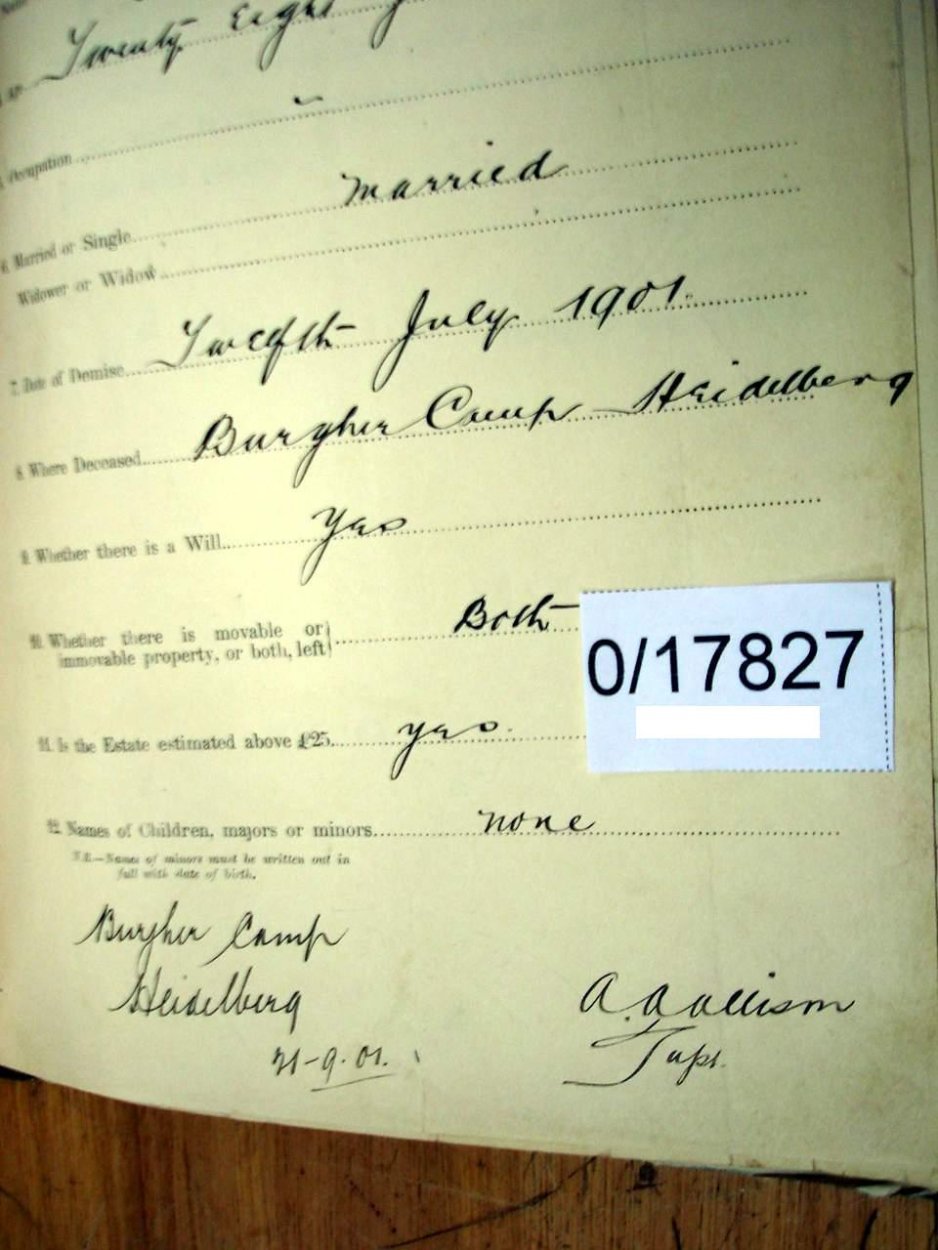 Twenty Eight
Occupation
6. Married or Single Married
Widower or Widow
7. Date of Demise Twelfth July 1901.
8. Where Deceased Burgher Camp Heidelberg
9. Whether there is a Will Yes
10. Whether there is movable or
immovable property, or both, left Both
0/17827
11. Is the Estate estimated above £25 yes.
12. Names of Children, majors or minors none
N.B.—Names of minors must be written out in
full with date of birth.
Burgher Camp
Heidelberg
A. A Allison
Supt.
21-9.01.